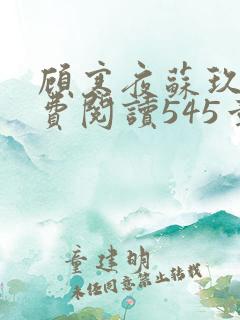 顧寒夜蘇玖
費閱讀545
童建明
未經同意禁止轉載